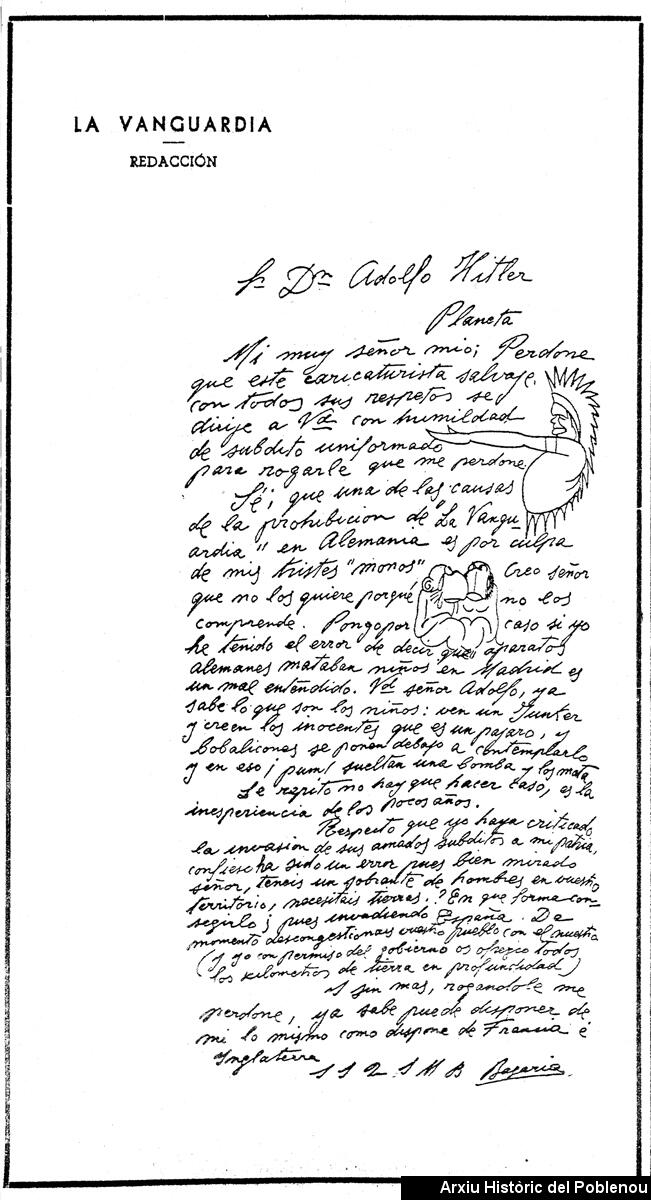 LA VANGUARDIA
REDACCIÓN
Sr Dn Adolfo Hitler
Planeta
Mi muy señor mio; Perdone
que este caricaturista salvaje,
con todos sus respetos se
dirije a Vd con humildad
de subdito uniformado
para rogarle que me perdone.
Sé; que una de las causas
de la prohibicion de "La Vangu
ardia" en Alemania es por culpa
de mis tristes "monos" Creo señor
que no los quiere porqué no los
comprende. Pongo por caso si yo
he tenido el error de decir que aparatos
alemanes mataban niños en Madrid es
un mal entendido. Vd señor Adolfo, ya
sabe lo que son los niños: ven un Junker
y creen los inocentes que es un pajaro, y
bobalicones se ponen debajo a contemplarlo
y en eso ¡pum! sueltan una bomba y los mata
Le repito no hay que hacer caso, es la
inesperiencia de los pocos años.
Respecto que yo haya criticado
la invasión de sus amados subditos a mi patria,
confieso ha sido un error pues bien mirado
señor, teneis un sobrante de hombres en vuestro
territorio, necesitais tierras.? En que forma con-
segirlo; pues invadiendo España. De
momento descongestionais vuestro pueblo con el nuestro
(y yo con permiso del gobierno os ofrezco todos
los kilometros de tierra en profundidad)
Y sin mas, rogandole me
perdone, ya sabe puede disponer de
mi lo mismo como dispone de Francia é
Inglaterra
S S Q S M B Bagaria
Arxiu Històric del Poblenou